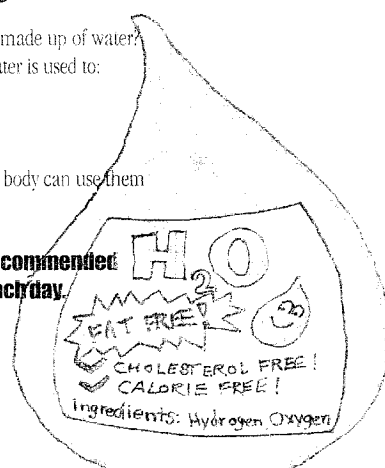 made up of water?
ter is used to:
body can use them
commended
ach day.
H2O
FAT FREE!
CHOLESTEROL FREE!
CALORIE FREE!
Ingredients: Hydrogen Oxygen